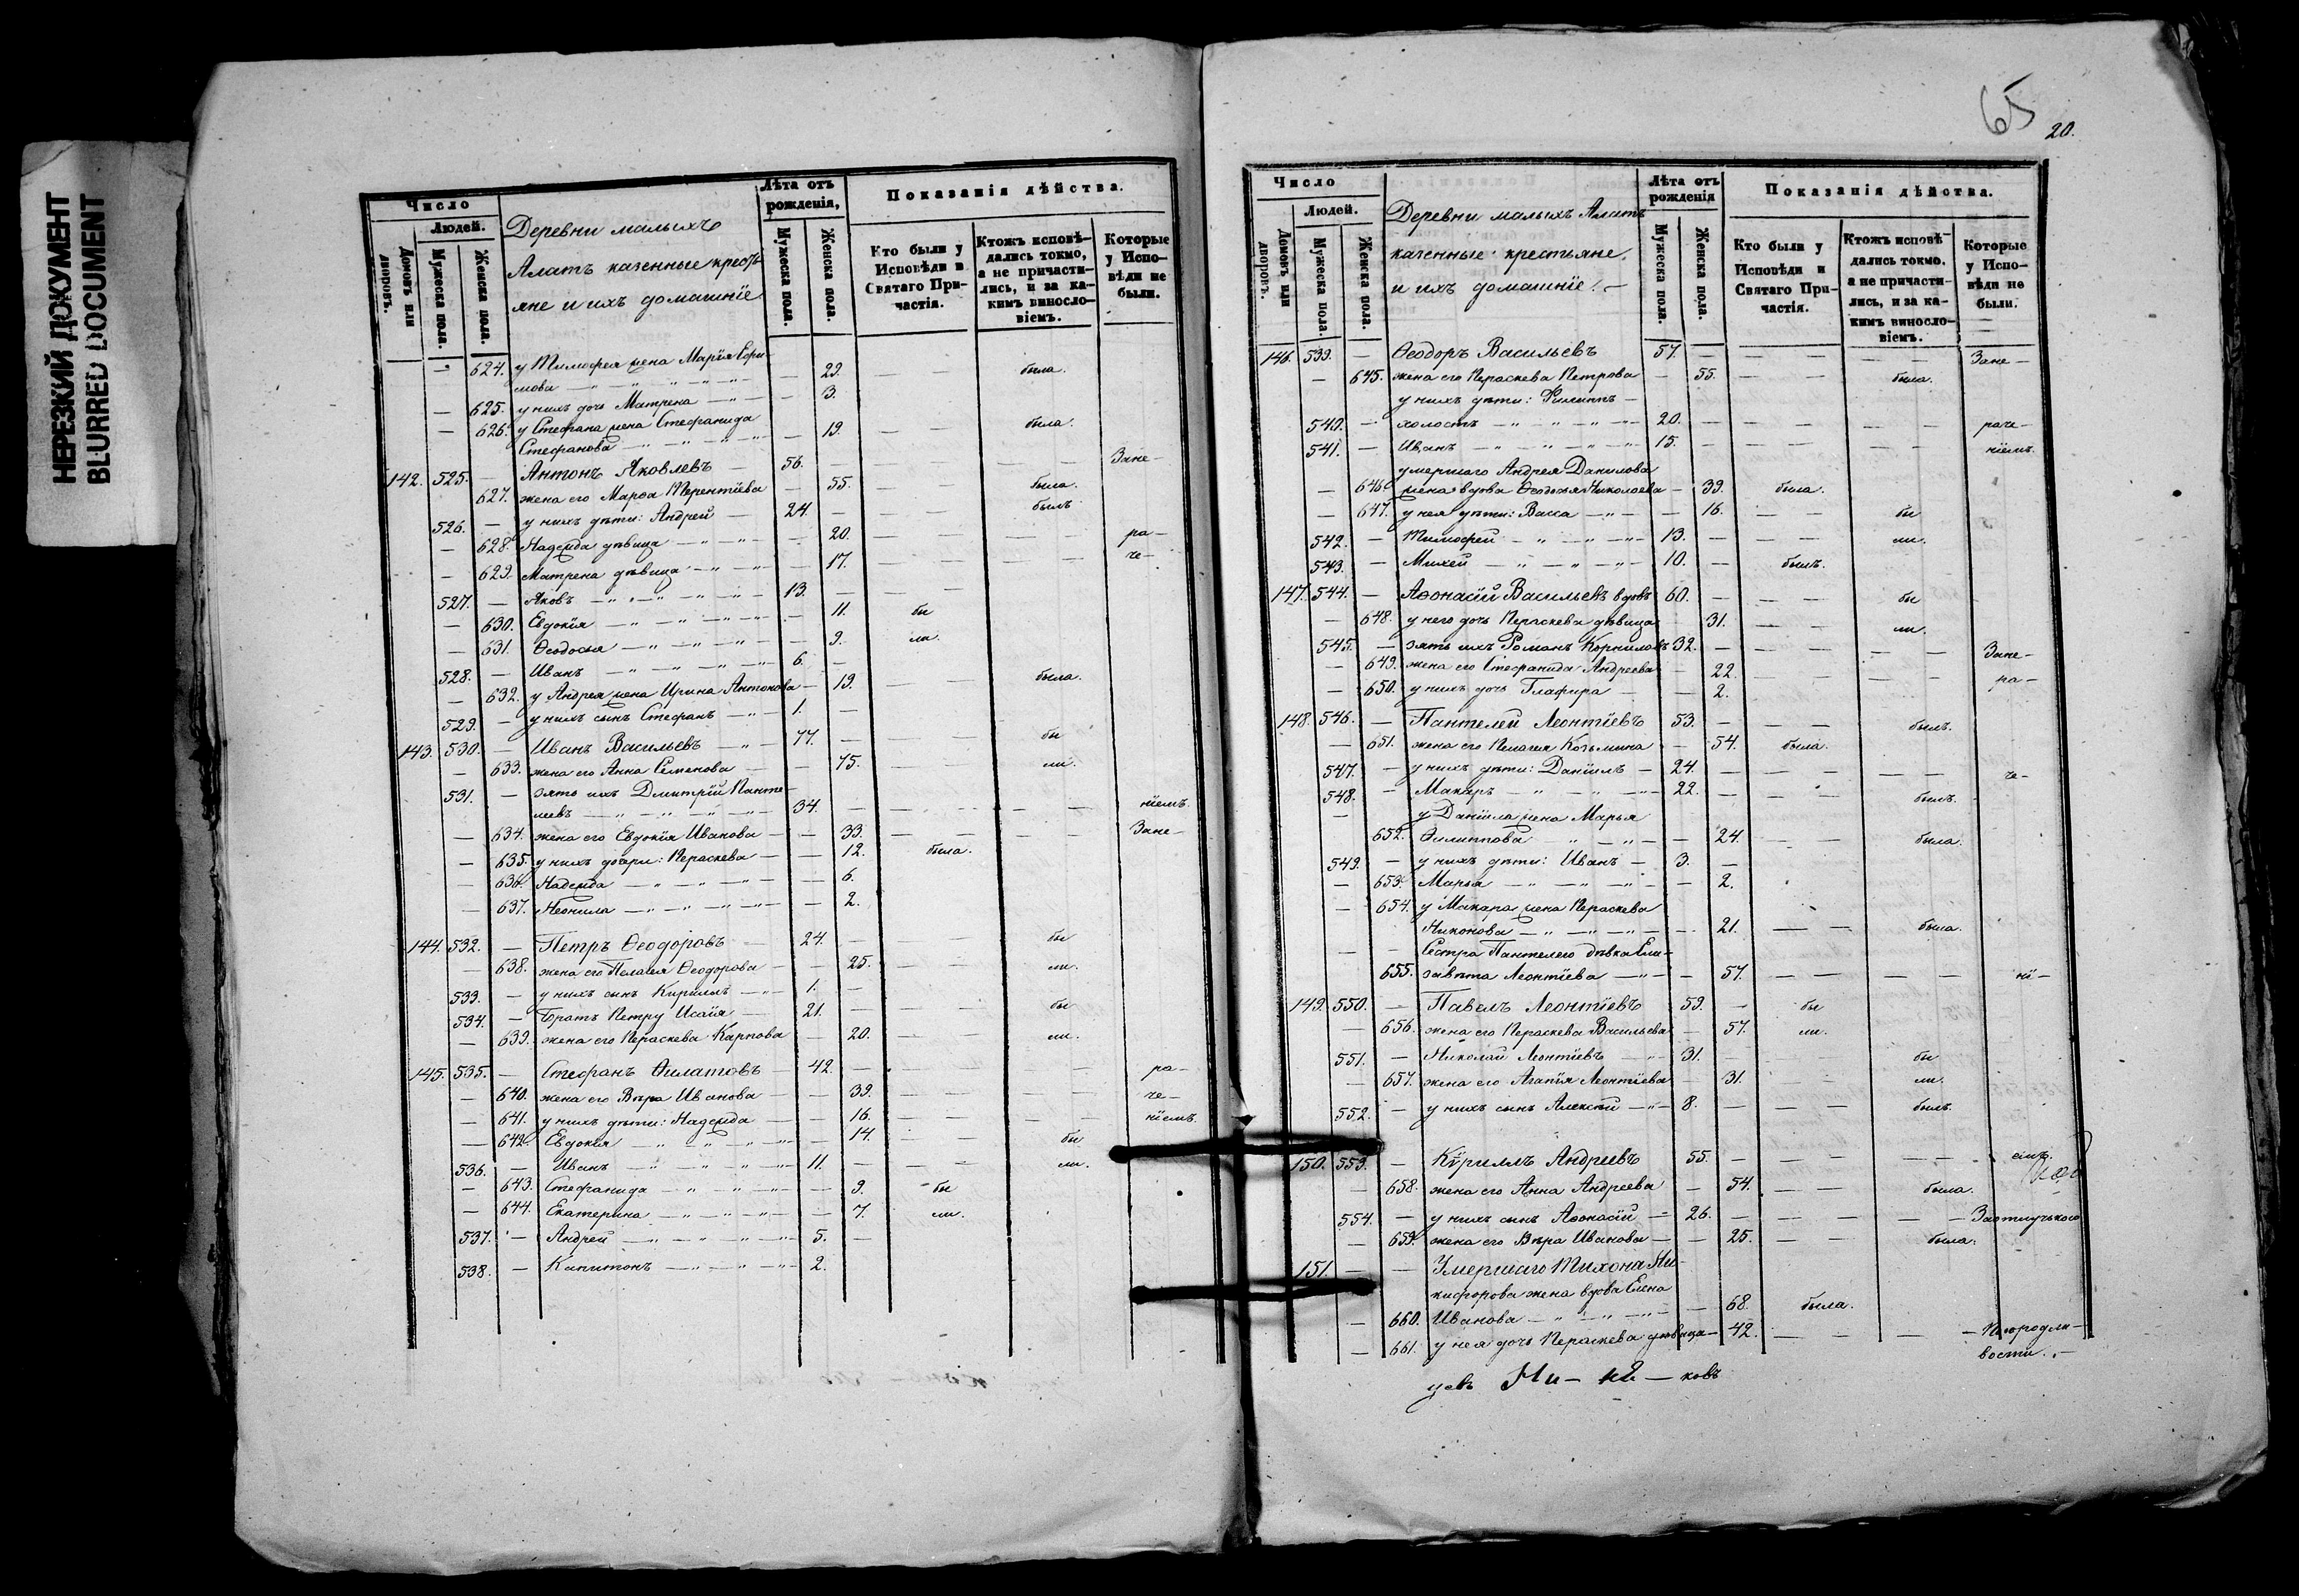 НЕРЕЗКИЙ ДОКУМЕНТ
BLURRED DOCUMENT
Число
Людей.
Домовъ или дворовъ.
Мужеска пола.
Женска пола.
Деревни малыхъ
Алатъ казенные кресть-
яне и ихъ домашніе
Лѣта отъ рожденія,
Мужеска пола.
Женска пола.
Показанія дѣйства.
Кто были у Исповѣди и Святаго При-частія.
Ктожъ исповѣ-дались токмо, а не причасти-лись, и за ка-кимъ винослο-віемъ.
Которые у Испо-вѣди не были.
— 624. у Тимофея жена Марія Ефи-
мова — 29. — — была.
— 625. у нихъ дочь Матрена — 3.
— 626. у Стефана жена Стефанида
Стефанова — 19. — — была.
142. 525. — Антонъ Яковлевъ — 56. — Зане-
627. жена его Марѳа Терентіева — 55. — — была.
526. — у нихъ дѣти: Андрей — 24. — былъ
— 628. Надежда дѣвица — 20. — ра-
— 629. Матрена дѣвица — 17. — че-
527. — Яковъ — 13. —
— 630. Евдокія — 11. бы
— 631. Ѳеодосья — 9. ли.
528. — Иванъ — 6. —
— 632. у Андрея жена Ирина Антонова — 19. — была.
529. — у нихъ сынъ Стефанъ — 1. —
143. 530. — Иванъ Васильевъ — 77. — бы
— 633. жена его Анна Семенова — 75. — ли.
531. — зять ихъ Дмитрій Панте-
леевъ — 34. — ніемъ.
— 634. жена его Евдокія Иванова — 33. — Зане-
— 635. у нихъ дочери: Пераскева — 12. была.
— 636. Надежда — 6.
— 637. Неонила — 2.
144. 532. — Петръ Ѳеодоровъ — 24. — бы
— 638. жена его Пелагея Ѳеодорова — 25. — ли.
533. — у нихъ сынъ Кирилъ — 1. —
534. — Братъ Петру Исаія — 21. — бы
— 639. жена его Пераскева Карпова — 20. — ли.
145. 535. — Стефанъ Филатовъ — 42. — ра-
— 640. жена его Вѣра Иванова — 39. — че-
— 641. у нихъ дѣти: Надежда — 16. — ніемъ.
— 642. Евдокія — 14. — бы
536. — Иванъ — 11. — ли.
— 643. Стефанида — 9. бы
— 644. Екатерина — 7. ли.
537. — Андрей — 5. —
538. — Капитонъ — 2.
65
20.
Число
Людей.
Домовъ или дворовъ.
Мужеска пола.
Женска пола.
Деревни малыхъ Алатъ
казенные крестьяне,
и ихъ домашніе. —
Лѣта отъ рожденія
Мужеска пола.
Женска пола.
Показанія дѣйства.
Кто были у Исповѣди и Святаго При-частія.
Ктожъ исповѣ-дались токмо, а не причасти-лись, и за ка-кимъ винослο-віемъ.
Которые у Испо-вѣди не были.
146. 539. — Ѳеодоръ Васильевъ 57. — Зане-
— 645. жена его Пераскева Петрова — 55. — была.
у нихъ дѣти: Филиппъ —
540. — холостъ — 20. — раче-
541. — Иванъ — 15. — ніемъ.
умершаго Андрея Данилова
— 646. жена вдова Ѳеодосья Николаева — 39. была.
— 647. у нея дѣти: Васса — 16. — бы
542. — Тимофей — 13. — ли.
543. — Михей — 10. — былъ.
147. 544. — Аѳонасій Васильевъ вдовъ 60. — бы
— 648. у него дочь Пераскева дѣвица 31. — ли.
545. — зять ихъ Романъ Корниловъ 32. — Зане-
— 649. жена его Стефанида Андреева — 22. — ра-
— 650. у нихъ дочь Глафира — 2.
148. 546. — Пантелей Леонтіевъ 53. — былъ.
— 651. жена его Пелагея Козьмина — 54. была.
547. — у нихъ дѣти: Даніилъ — 24. — че-
548. — Макаръ — 22. — былъ.
— у Даніила жена Марья
652. Филиппова — 24. — была.
549. — у нихъ дѣти: Иванъ — 3. —
— 653. Марья — 2.
— 654. у Макара жена Пераскева
Никонова — 21. — была.
— Сестра Пантелею дѣвка Ели-
655. завѣта Леонтіева — 57. — ні-
149. 550. — Павелъ Леонтіевъ 59. — бы
— 656. жена его Пераскева Васильева — 57. ли.
551. — Николай Леонтіевъ — 31. — бы
— 657. жена его Агапія Леонтіева — 31. — ли.
552. — у нихъ сынъ Алексѣй — 8. — былъ.
150. 553. — Кіриллъ Андреевъ 55. — емъ.
— 658. жена его Анна Андреева — 54. — была.
554. — у нихъ сынъ Аѳонасій — 26. — За отлучкою
— 659. жена его Вѣра Иванова — 25. — была.
151. — — Умершаго Тихона Ни-
кифорова жена вдова Елена
— 660. Иванова — 68. была.
— 661. у нея дочь Пераскева дѣвица — 42. — По юродли-
вости. —
Ни-
ковъ